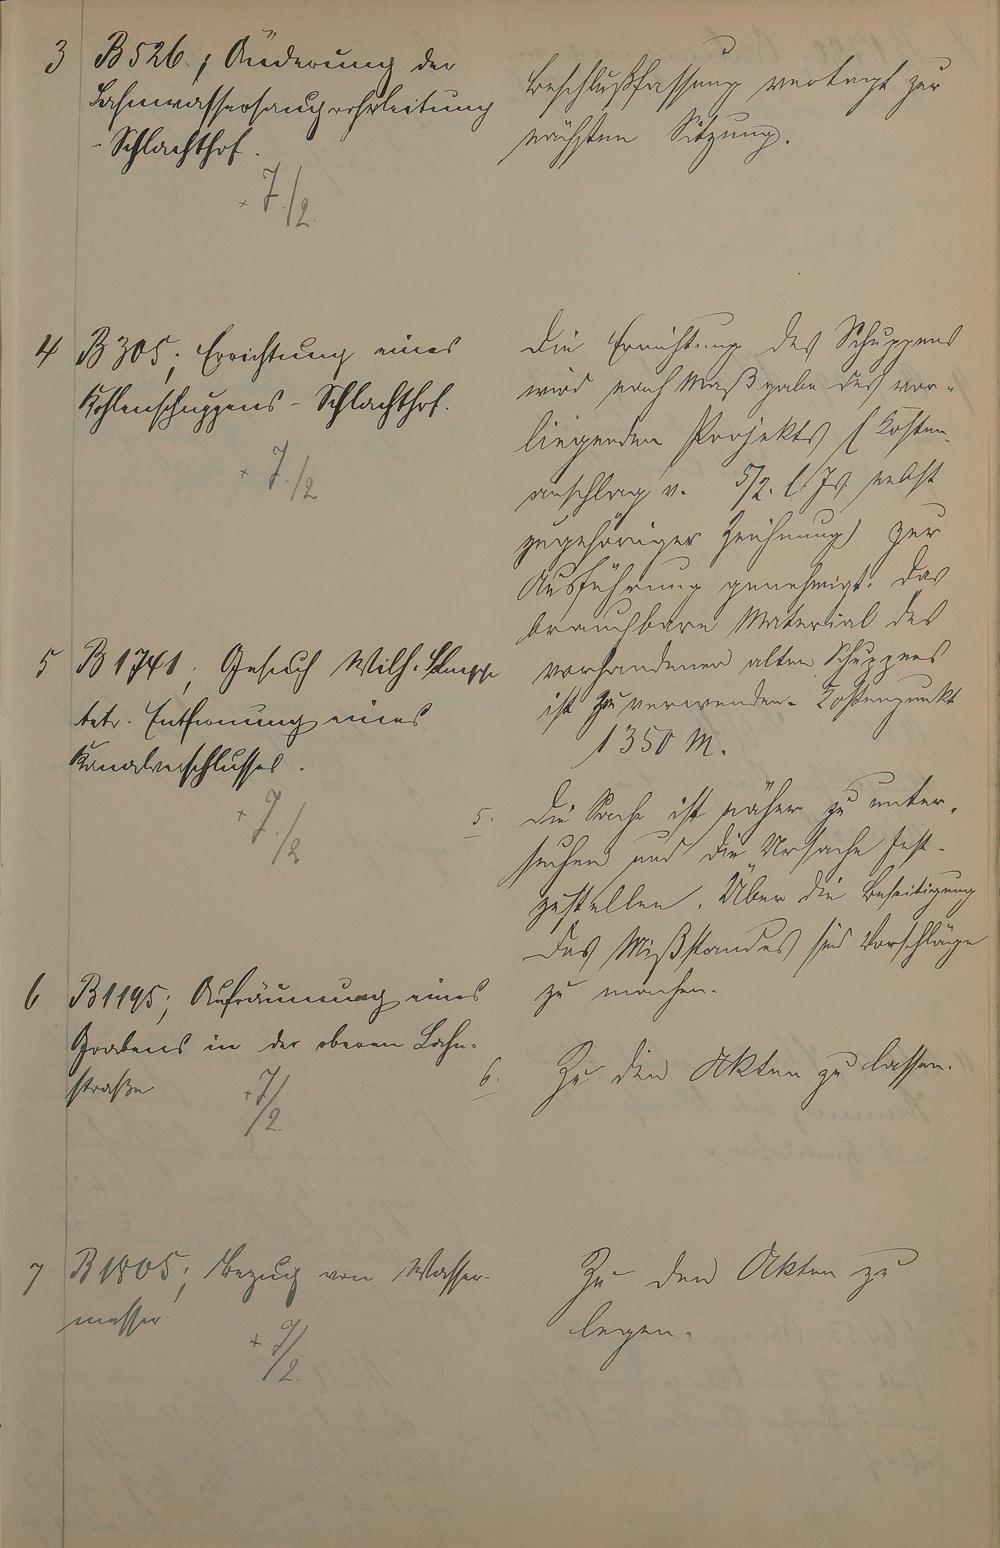 3 B 526; Änderung der
Lahnwassersaugrohrleitung
- Schlachthof.
7./2.
Beschlußfassung vertagt zur
nächsten Sitzung.
4 B 305; Errichtung eines
Kohlenschuppens - Schlachthof.
7./2
Die Errichtung des Schuppens
wird nach Maßgabe des vor-
liegenden Projekts (Kosten-
anschlag v. 5/2. l. Js. nebst
zugehöriger Zeichnung) zur
Ausführung genehmigt. Das
brauchbare Material des
vorhandenen alten Schuppens
ist zu verwenden. Kostenpunkt
1350 M.
5 B 1741; Gesuch Wilh.
betr. Entfernung eines
Kanalverschlusses.
7./2
5. Die Sache ist näher zu unter-
suchen und die Ursache fest-
zustellen. Über die Beseitigung
des Mißstandes sind Vorschläge
zu machen.
6 B 1195; Aufräumung eines
Grabens in der oberen Lahn-
straße
7/2.
6. Zu den Akten zu lassen.
7 B 1805; Bezug von Wasser-
messer.
7/2.
Zu den Akten zu
legen.